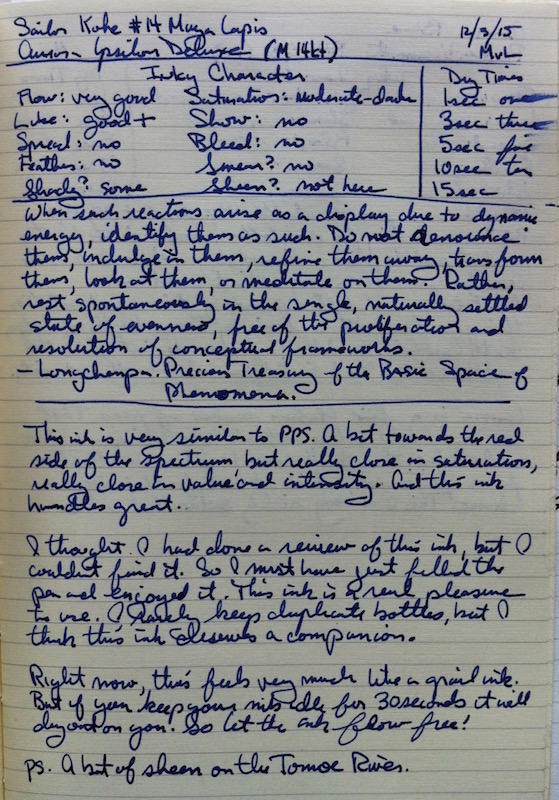 Sailor Kobe #14 Maya Lapis 12/3/15
Aurora Ipsilon Deluxe (M 14kt) MvL
Inky Character Dry Times
Flow: very good Saturation: moderate-dark 1sec one
Lube: good + Show: no 3sec three
Spread: no Bleed: no 5sec five
Feather: no Smear? no 10sec ten
Shady? some Sheen? not here 15sec
When such reactions arise as a display due to dynamic
energy, identify them as such. Do not denounce
them, indulge in them, refine them away, transform
them, look at them, or meditate on them. Rather,
rest spontaneously in the single, naturally settled
state of evenness, free of the proliferation and
resolution of conceptual frameworks.
- Longchenpa. Precious Treasury of the Basic Space of
Phenomena.
This ink is very similar to PPS. A bit towards the red
side of the spectrum, but really close in saturation,
really close in value and intensity. And this ink
handles great.
I thought I had done a review of this ink, but I
couldn't find it. So I must have just filled the
pen and enjoyed it. This ink is a real pleasure
to use. I rarely keep duplicate bottles, but I
think this ink deserves a companion.
Right now, this feels very much like a grail ink.
But if you keep your nib idle for 30 seconds it will
dry out on you. So let the ink flow free!
ps. A bit of sheen on the Tomoe River.